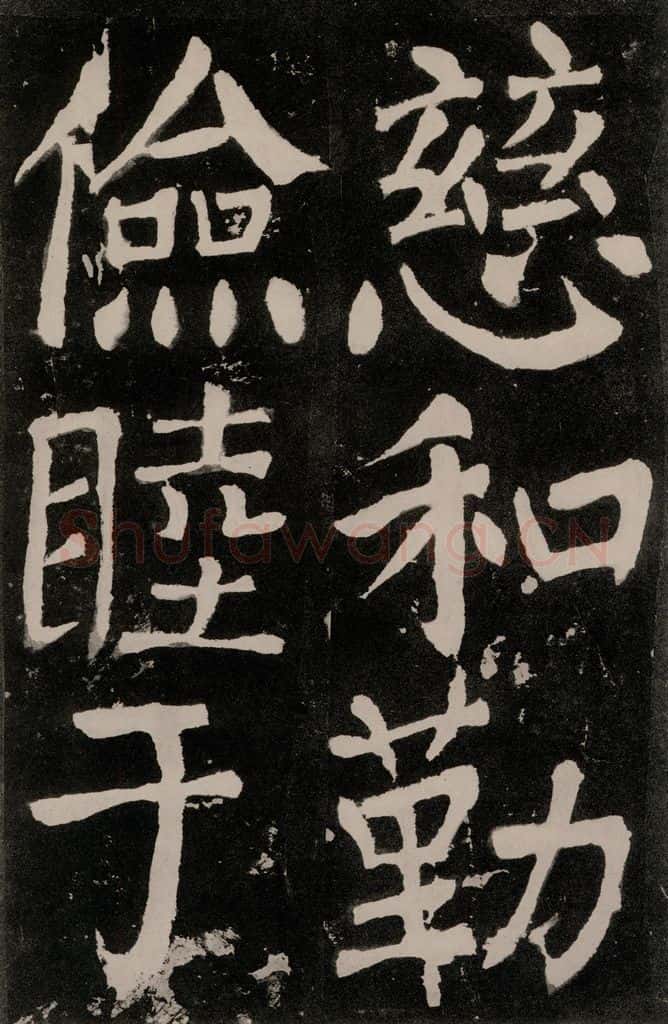 慈和勤
儉睦于
Shufawang.CN